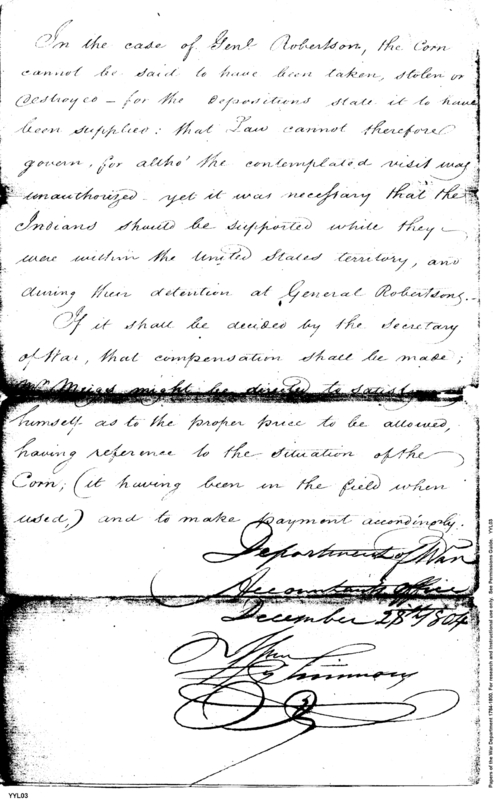 In the case of Genl Robertson, the Corn
cannot be said to have been taken, stolen or
destroyed – for the Depositions state it to have
been supplied: that Law cannot therefore
govern, for altho' the contemplated visit was
unauthorized – yet it was necessary that the
Indians should be supported while they
were within the United States territory, and
during their detention at General Robertsons.
If it shall be decided by the Secretary
of War, that compensation shall be made;
Mr Meigs might be directed to satisfy
himself as to the proper price to be allowed,
having reference to the situation of the
Corn; (it having been in the field when
used,) and to make payment accordingly.
Department of War
Accountants office
December 28th 1804
Wm Simmons
YYL03
Papers of the War Department 1784-1800. For research and instructional use only. See Permissions Guide. YYL03